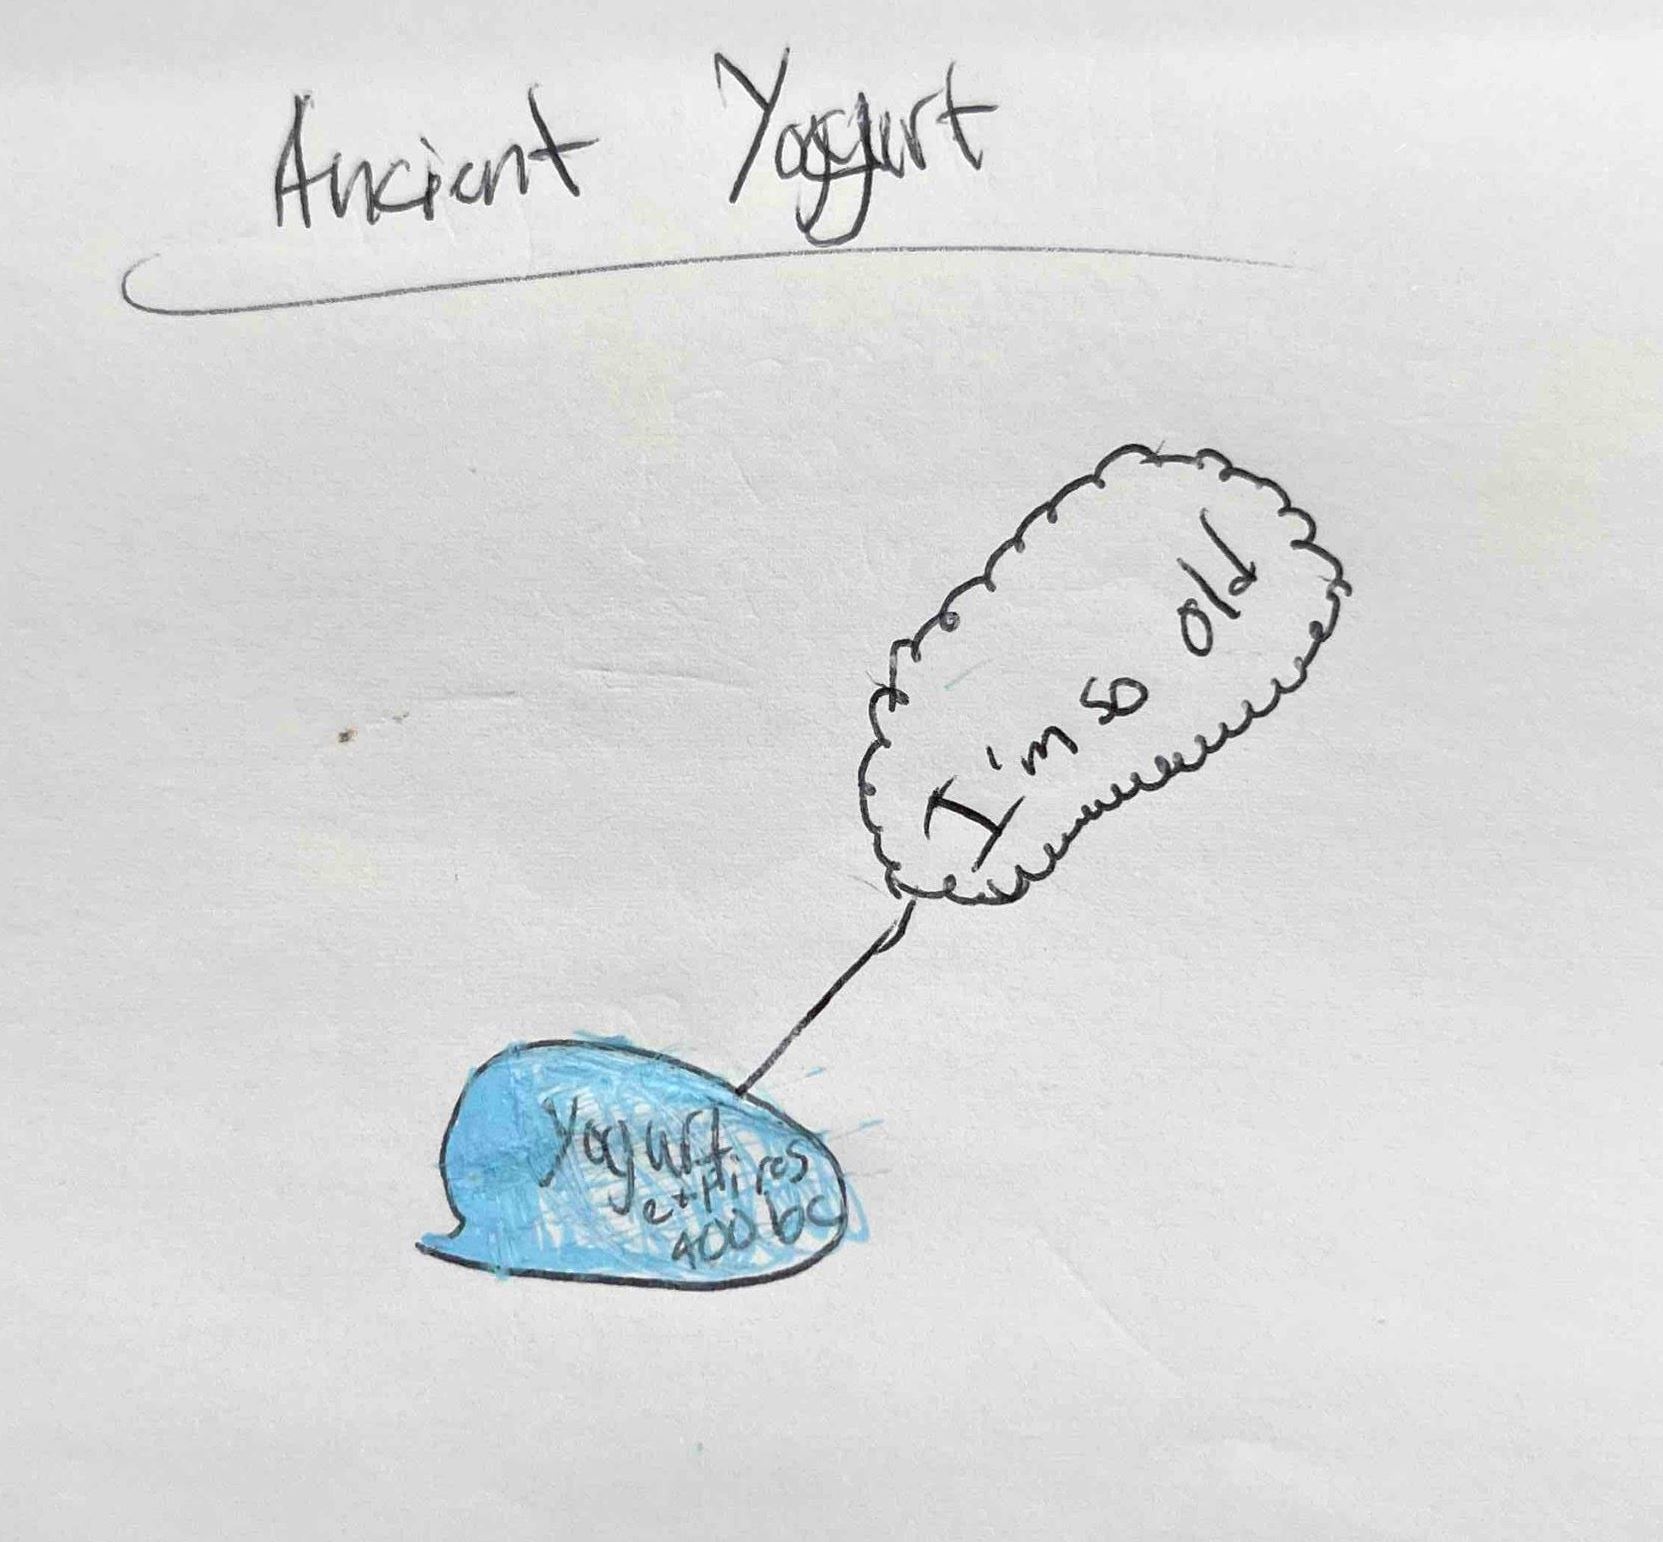 Ancient Yogurt
I'm so old
Yogurt
expires
400 bc